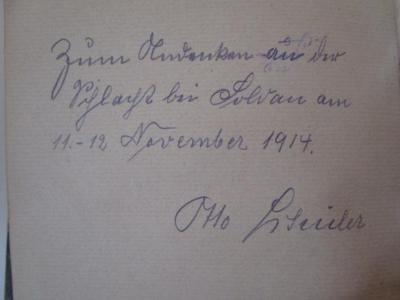 Zum Andenken an der
Schlacht bei Soldau am
11.-12 November 1914.
Otto